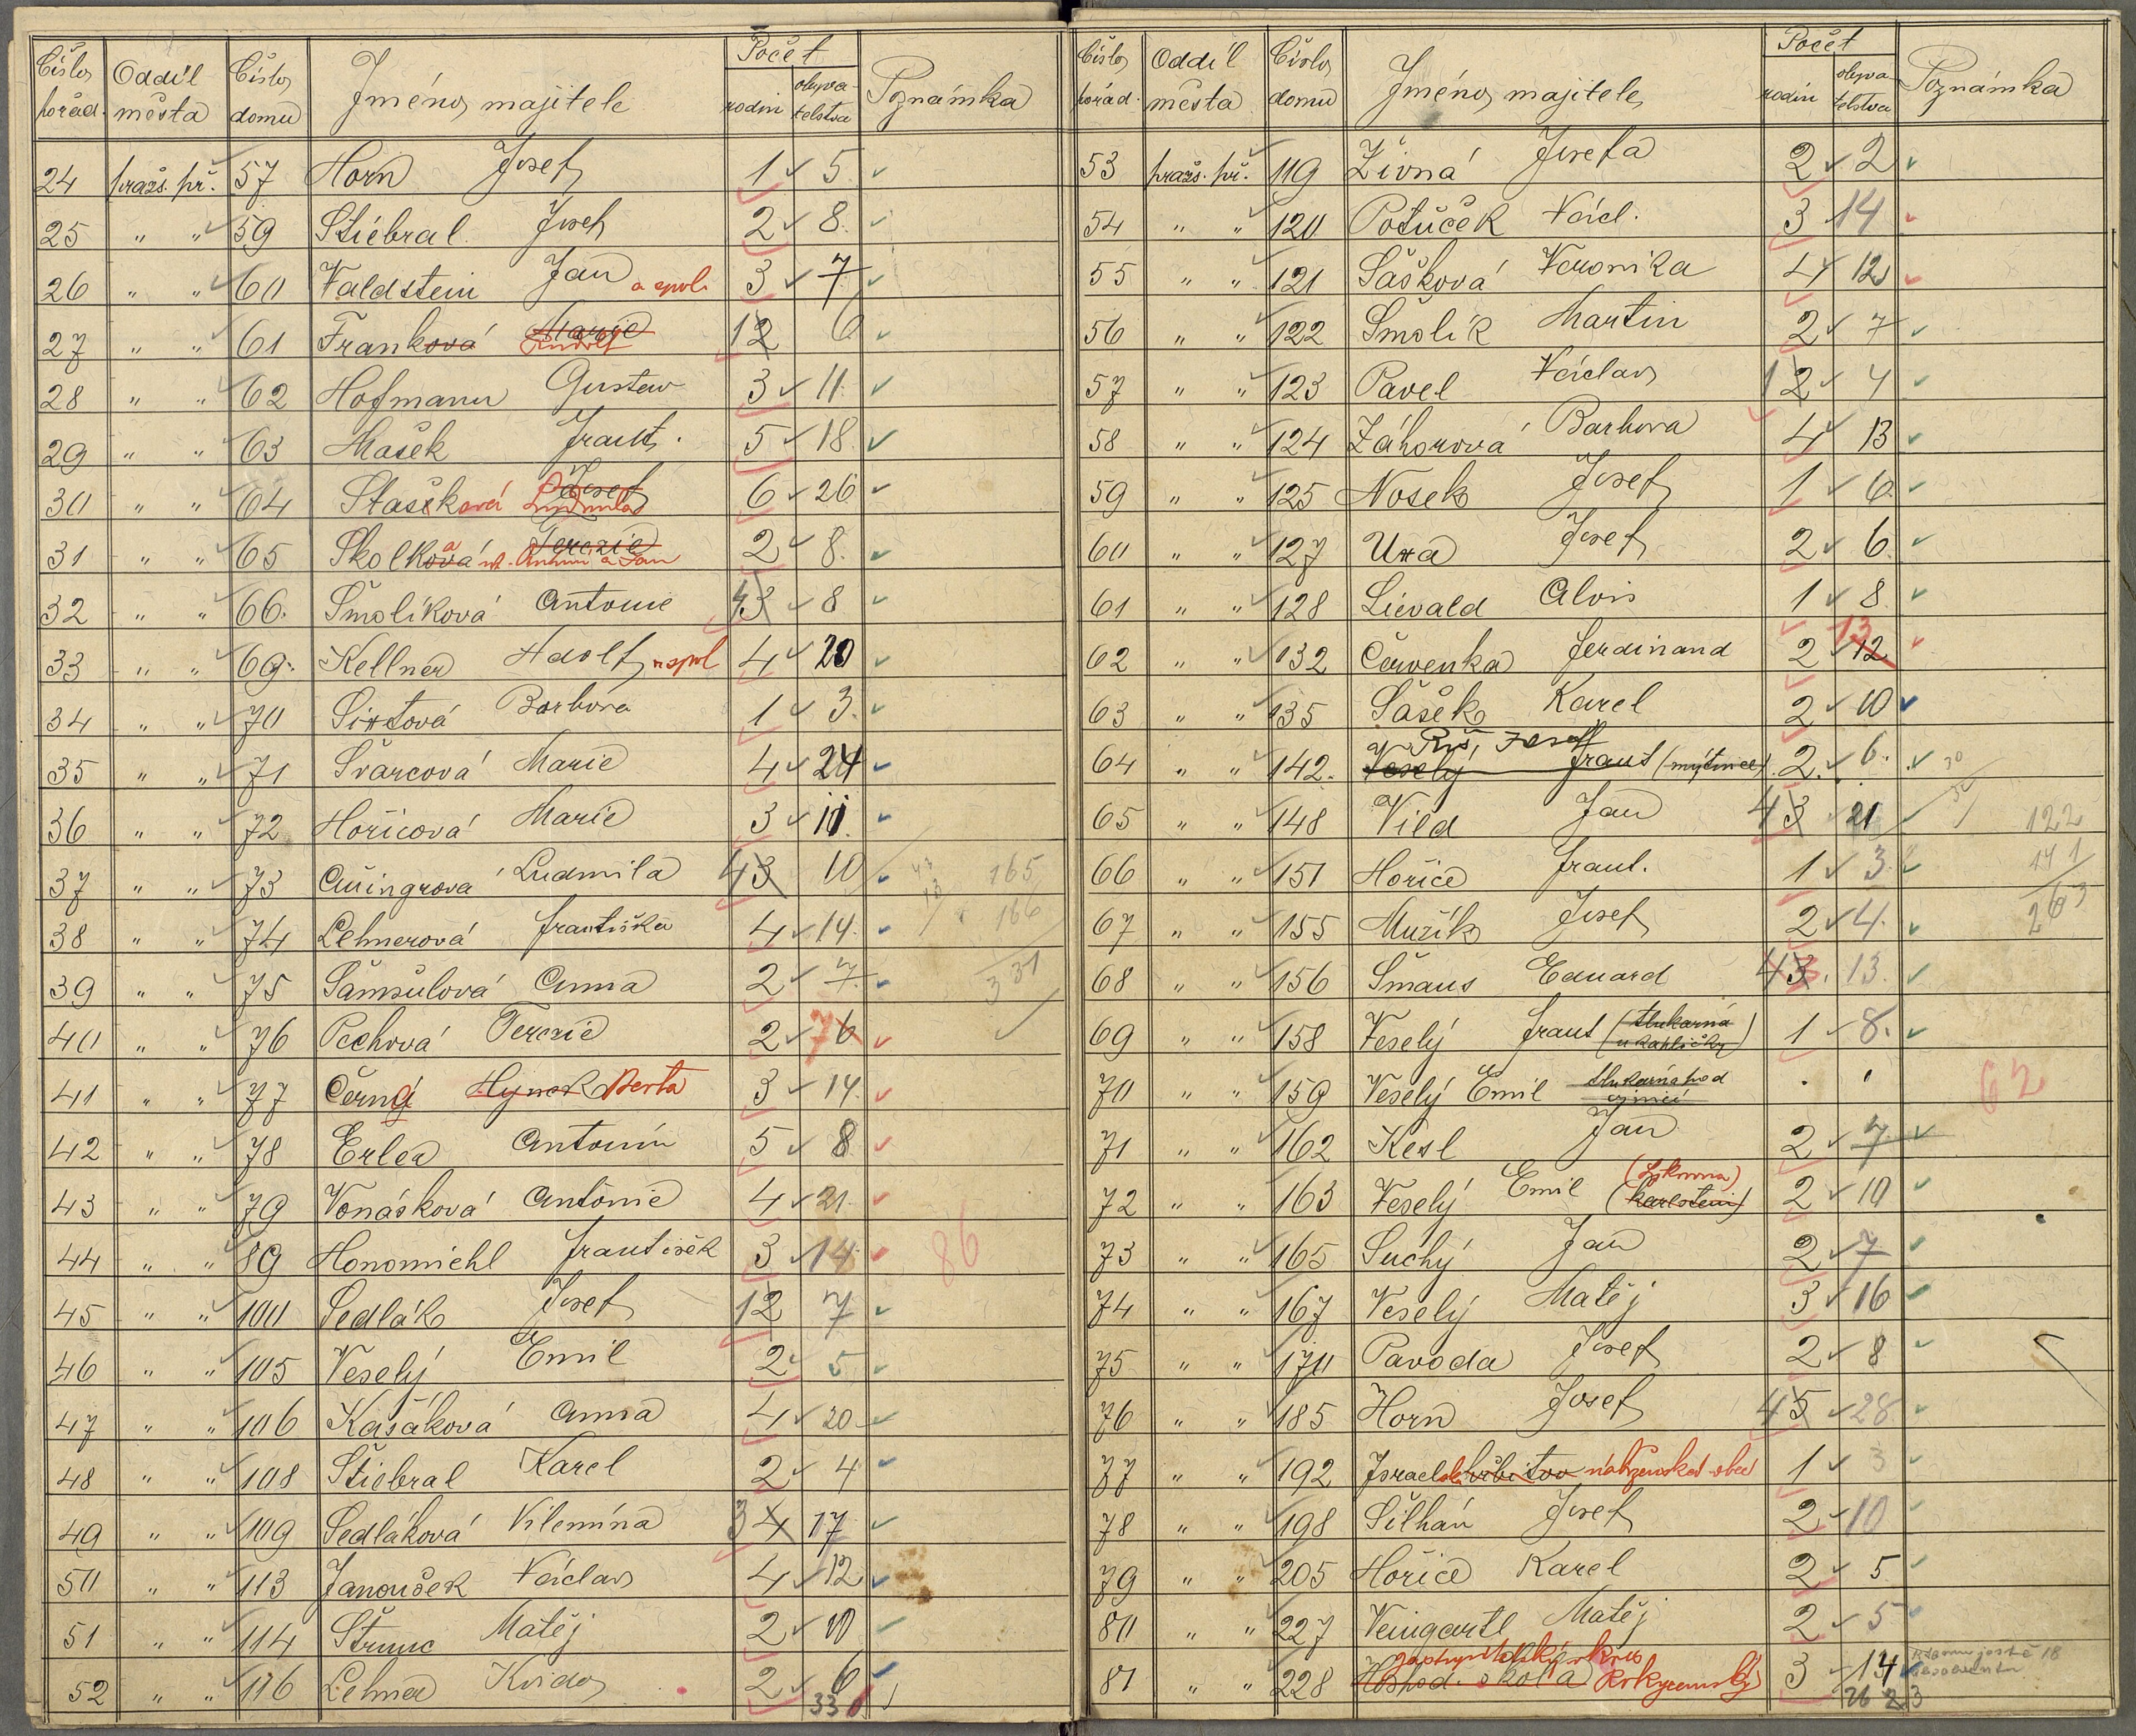 Číslo pořád. Oddíl města Číslo domu Jméno majitele Počet rodin obyvatelstva Poznámka
24 pražs. př. 57 Horn Josef 1 5
25 " " 59 Stiebral Josef 2 8.
26 " " 60 Valdstein Jan a spol. 3 7
27 " " 61 Franková Marie Rudolf 1 2 6
28 " " 62 Hofmann Gustav 3 11.
29 " " 63 Mašek Frant. 5 18.
30 " " 64 Stašková Josef Ludmila 6 26
31 " " 65 Skolková Terezie a Jan 2 8.
32 " " 66. Smolíková Antonie 4 3 8
33 " " 69. Kellner Adolf a spol 4 20
34 " " 70 Sixtová Barbora 1 3.
35 " " 71 Švarcová Marie 4 24
36 " " 72 Hořicová Marie 3 11.
37 " " 73 Ludmila 4 3 10 43 165
38 " " 74 Lehnerová Františka 4 14. 13 166
39 " " 75 Šamšulová Anna 2 7. 331
40 " " 76 Pechová Terezie 2 7 6
41 " " 77 Černý Hynek Berta 3 14.
42 " " 78 Erler Antonín 5 8
43 " " 79 Vonásková Antonie 4 21.
44 " " 89 Honomichl František 3 14. 86
45 " " 100 Sedlák Josef 1 2 7
46 " " 105 Veselý Emil 2 5
47 " " 106 Kasáková Anna 4 20
48 " " 108 Štiebral Karel 2 4
49 " " 109 Sedláková Vilemína 3 4 17
50 " " 113 Janoušek Václav 4 12
51 " " 114 Štrunc Matěj 2 10
52 " " 116 Lehner Kvido 2 6
331
Číslo pořád. Oddíl města Číslo domu Jméno majitele Počet rodin obyvatelstva Poznámka
53 pražs. př. 119 Živná Josefa 2 2
54 " " 120 Potůček Václ. 3 14
55 " " 121 Šašková Veronika 4 12
56 " " 122 Smolík Martin 2 7
57 " " 123 Pavel Václav 1 2 4
58 " " 124 Záhorová Barbora 4 13
59 " " 125 Nosek Josef 1 6.
60 " " 127 Uxa Josef 2 6
61 " " 128 Lievald Alois 1 8
62 " " 132 Červenka Ferdinand 2 13 12
63 " " 135 Šašek Karel 2 10
64 " " 142. Josef Veselý Frant (mýtnice) 2. 6. 30
65 " " 148 Vild Jan 4 3 21 122
66 " " 151 Hořice Frant. 1 3. 141
67 " " 155 Mužík Josef 2 4. 263
68 " " 156 Šmaus Eduard 4 3. 13.
69 " " 158 Veselý Frant (tlukárna u kapličky) 1 8.
70 " " 159 Veselý Emil tlukárna pod . . 62
71 " " 162 Kesl Jan 2 7
72 " " 163 Veselý Emil (Karlstein) 2 10
73 " " 165 Suchý Jan 2 7
74 " " 167 Veselý Matěj 3 16
75 " " 170 Pavoda Josef 2 8
76 " " 185 Horn Josef 4 5 28
77 " " 192 Israel. hřbitov náboženská obec 1 3
78 " " 198 Šilhán Josef 2 10
79 " " 205 Hořice Karel 2 5
80 " " 227 Veingartl Matěj 2 5
81 " " 228 Hospod. škola Rokycanský 3 14 ještě 18
263